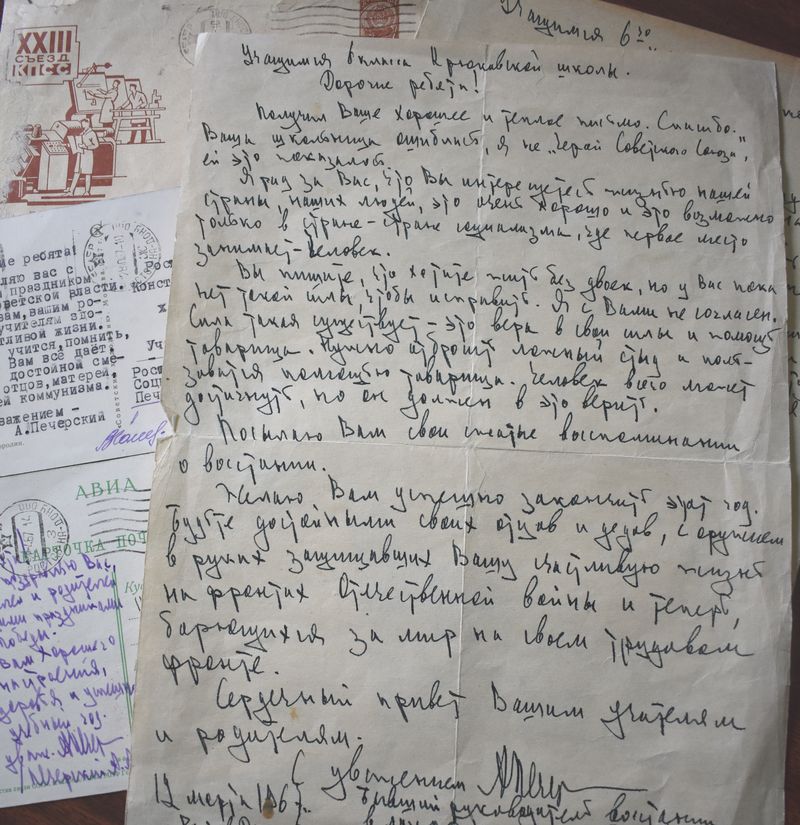 XXIII
СЪЕЗД
КПСС
Учащимся 6
Учащимся 6 класса Крюковской школы.
Дорогие ребята!
Получил Ваше хорошее и теплое письмо. Спасибо.
Ваша школьница ошиблась, я не „Герой Советского Союза",
ей это показалось.
Я рад за Вас, что Вы интересуетесь жизнью нашей
страны, наших людей, это очень хорошо и это возможно
только в стране – стране социализма, где первое место
занимает – человек.
Вы пишите, что хотите жить без двоек, но у Вас пока
нет такой силы, чтобы исправить. Я с Вами не согласен.
Сила такая существует – это вера в свои силы и помощь
товарища. Нужно отбросить ложный стыд и поль-
зоватся помощью товарища. Человек всего может
достичнуть, но он должен в это верить.
Посылаю Вам свои сжатые воспоминания
о восстании.
Желаю Вам успешно закончить этот год.
Будьте достойными своих отцов и дедов, с оружием
в руках защищавших Вашу счастливую жизнь
на фронтах Отечественной войны и теперь,
борющихся за мир на своем трудовом
фронте.
Сердечный привет Вашим учителям
и родителям.
С уважением АПечер
12 марта 196 г. бывший руководитель восстания
ие ребята!
ляю вас с
праздником
советской власти.
вам, вашим ро-
учителям здо-
тливой жизни.
учится, помнить,
Вам всё даёт,
достойной сме-
отцов, матерей
ей коммунизма.
важением –
А.Печерский
Рос
Конст
Х
Уч
Росс
Соци
Печ
АВИА
КАРТОЧКА ПОЧ
Ку
Вас,
и родителей
праздниками
Победы.
Вам хорошего
настроения,
здоровья и успешно
учебный год.
уваж. АПечер
Печерский А.А